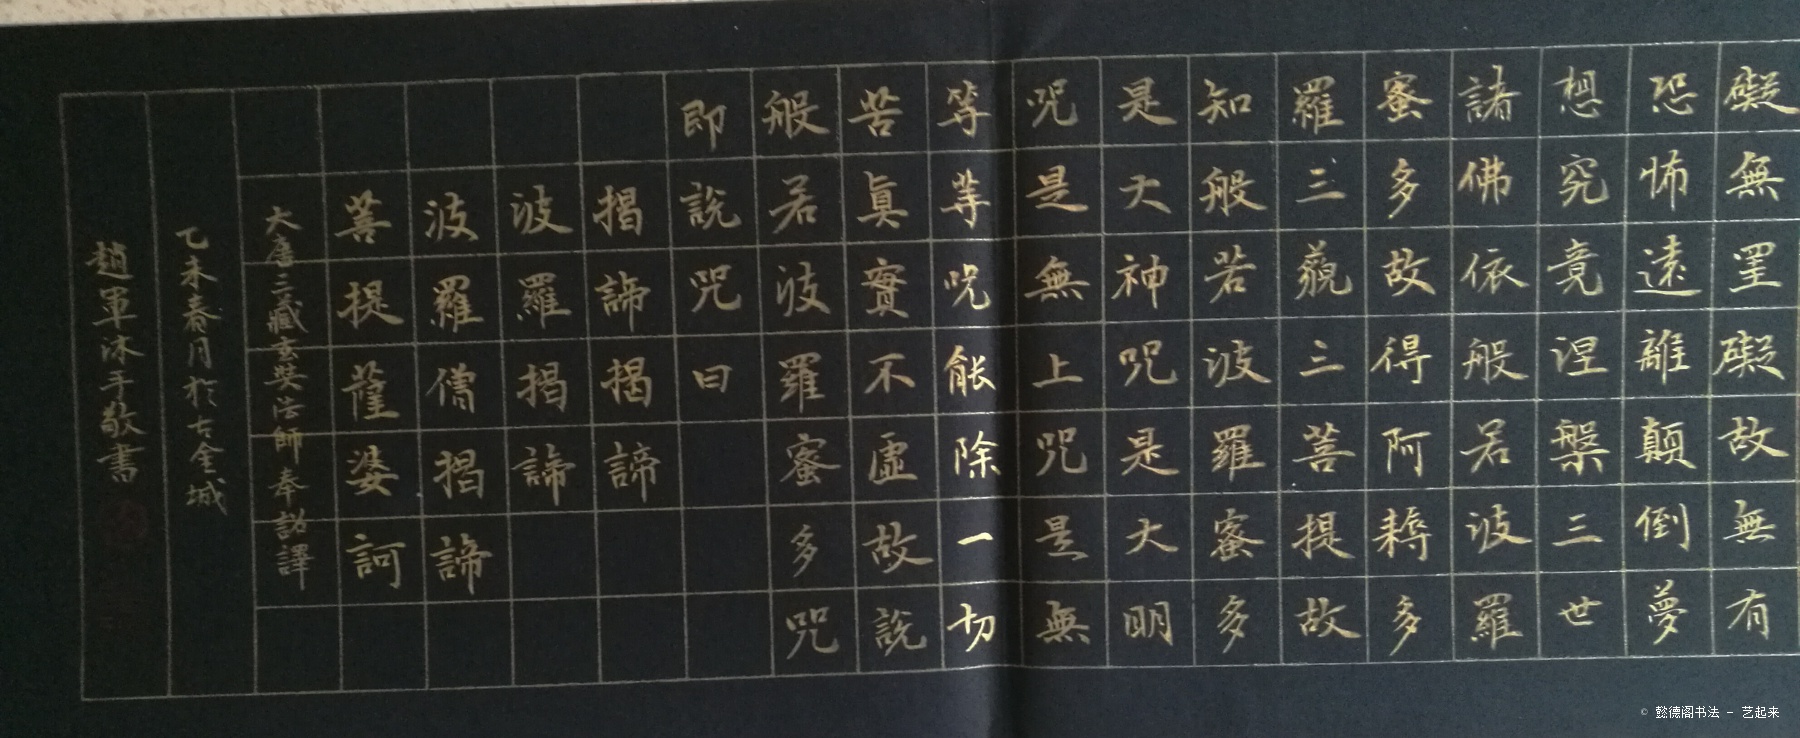 礙無罣礙故無有
恐怖遠離顛倒夢
想究竟涅槃三世
諸佛依般若波羅
蜜多故得阿耨多
羅三藐三菩提故
知般若波羅蜜多
是大神咒是大明
咒是無上咒是無
等等咒能除一切
苦眞實不虛故說
般若波羅蜜多咒
即說咒曰
揭諦揭諦
波羅揭諦
波羅僧揭諦
菩提薩婆訶
大唐三藏玄奘法師奉詔譯
乙未春月於古金城
趙軍沐手敬書
© 懿德阁书法 - 艺起来